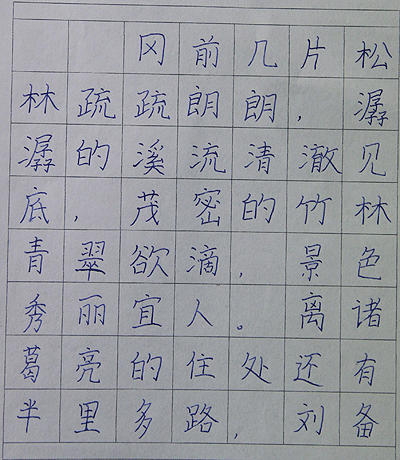 冈前几片松
林疏疏朗朗，潺
潺的溪流清澈见
底，茂密的竹林
青翠欲滴，景色
秀丽宜人。离诸
葛亮的住处还有
半里多路，刘备